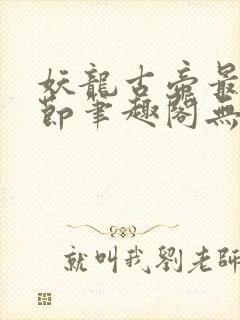 妖龍古帝最
節筆趣閣無
就叫我劉老師